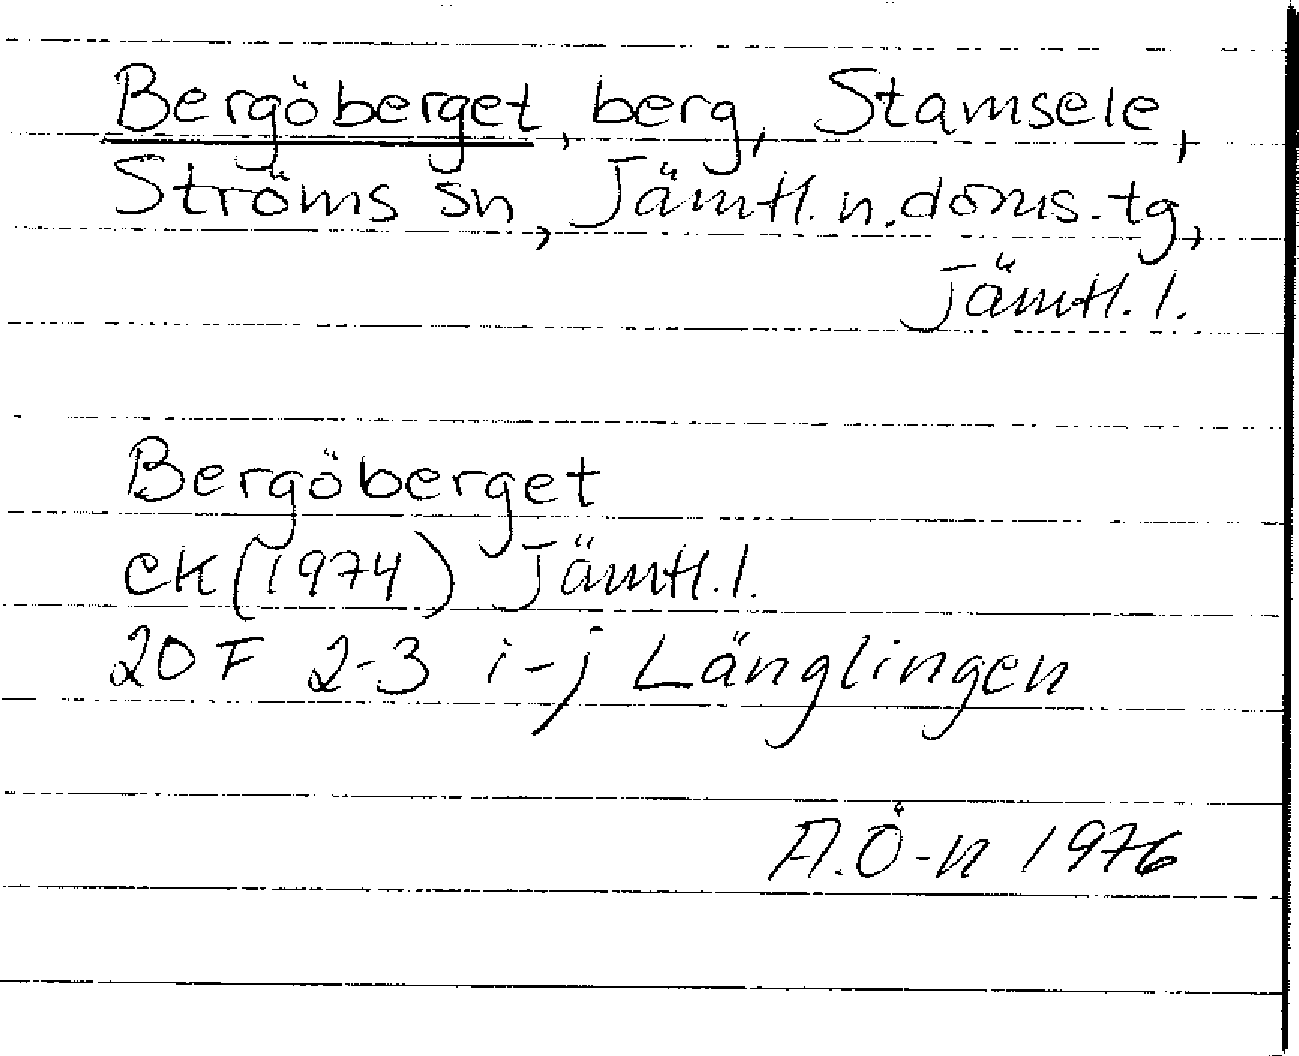 Bergöberget, berg, Stamsele,
Ströms sn, Jämtl. n. doms. tg,
Jämtl. l.
Bergöberget
ek (1974) Jämtl. l.
20 F 2-3 i-j Länglingen
A.Ö-n 1976